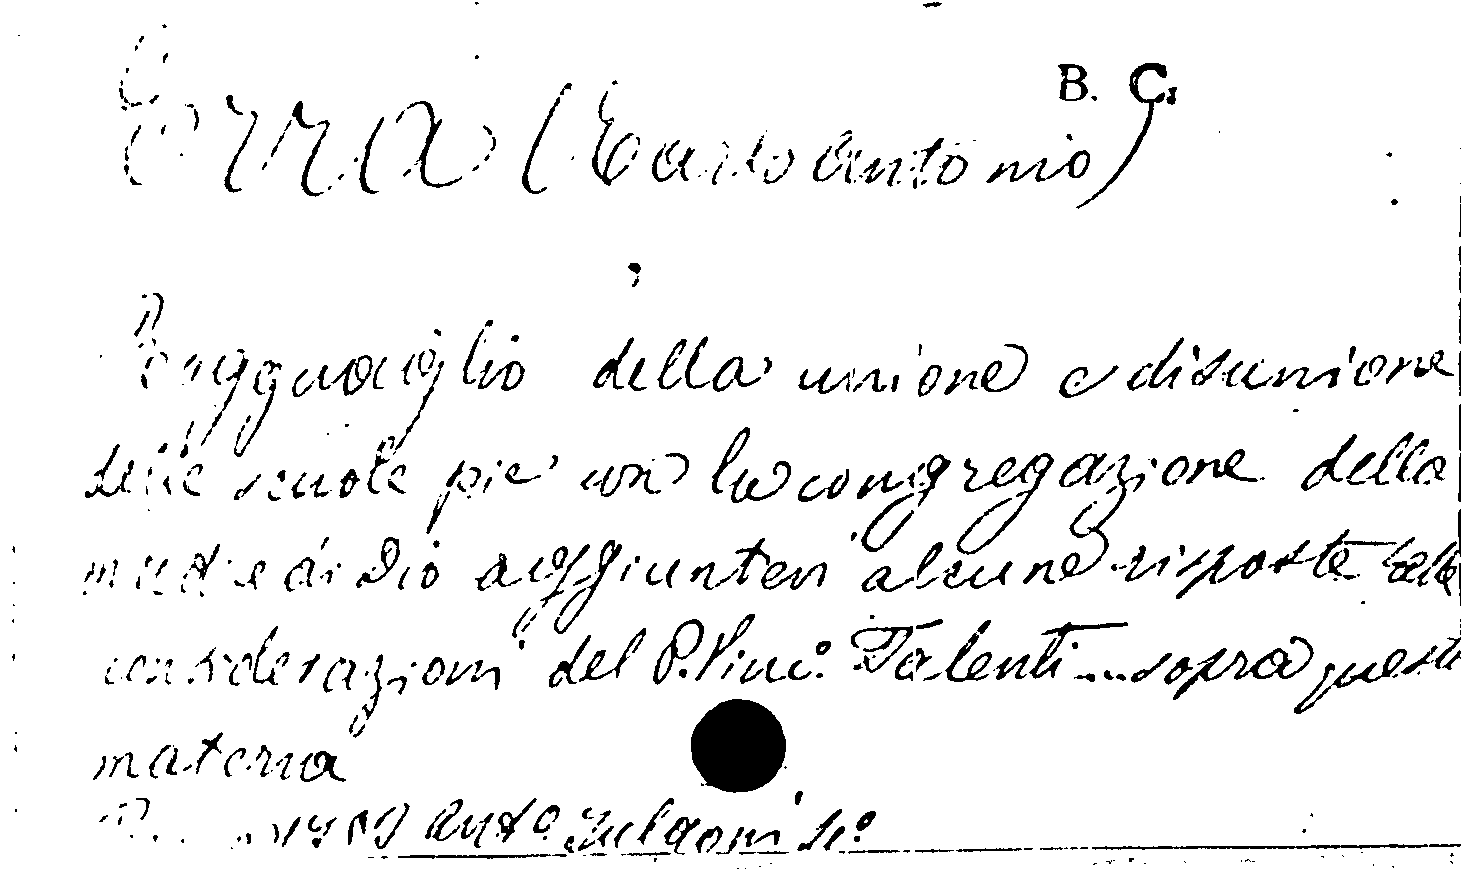 B. C.
Erra (Carlo Antonio)
Ragguaglio della unione e disunione
delle scuole pie con la congregazione della
madre di Dio aggiuntevi alcune risposte belle
considerazioni del P. Vinc.º Talenti ... sopra questa
materia
Ant.º Fulgoni 8.º